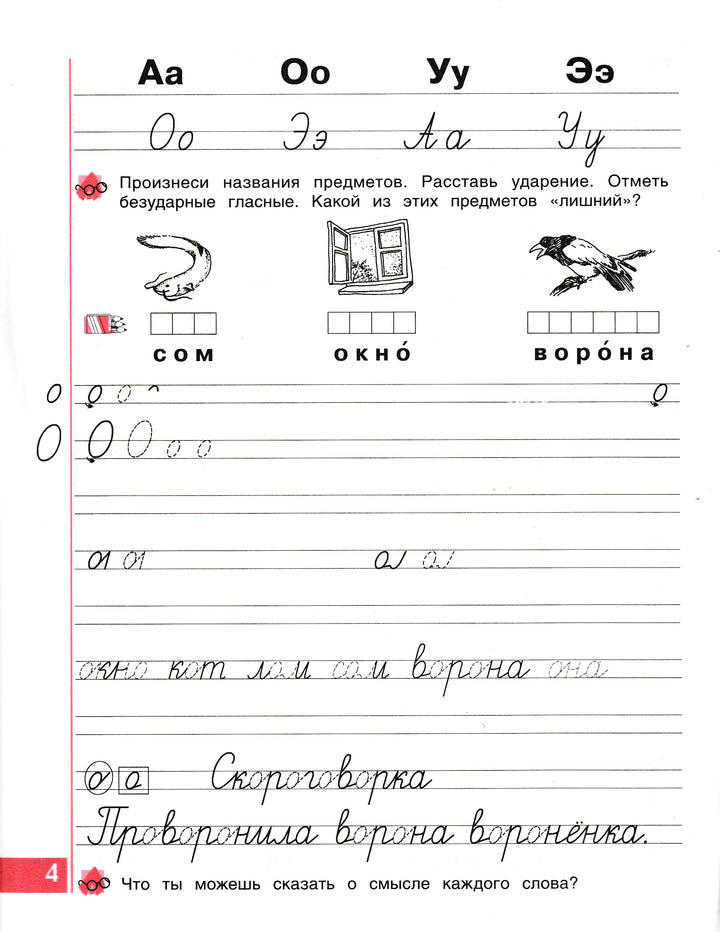 Аа Оо Уу Ээ
Оо Ээ Аа Уу
Произнеси названия предметов. Расставь ударение. Отметь
безударные гласные. Какой из этих предметов «лишний»?
сом окно́ воро́на
О О о о
О О О о о
окно кот лом сом ворона она
а о Скороговорка
Проворонила ворона воронёнка.
4 Что ты можешь сказать о смысле каждого слова?